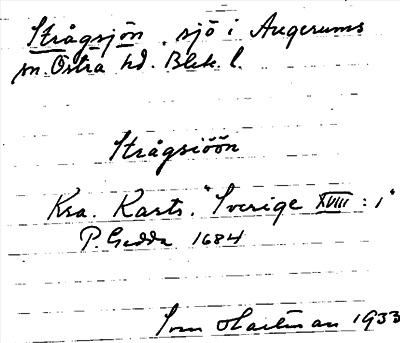 Strågsjön, sjö i Augerums
sn. Östra hd. Blek. l.
Strågsiöön
Kra. Karts. "Sverige XVIII : 1"
P. Gedda 1684
1933